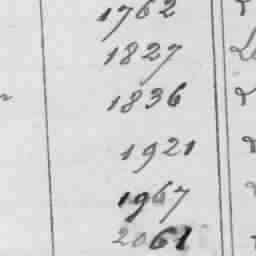 1762
1827
1836
1921
1967
2061